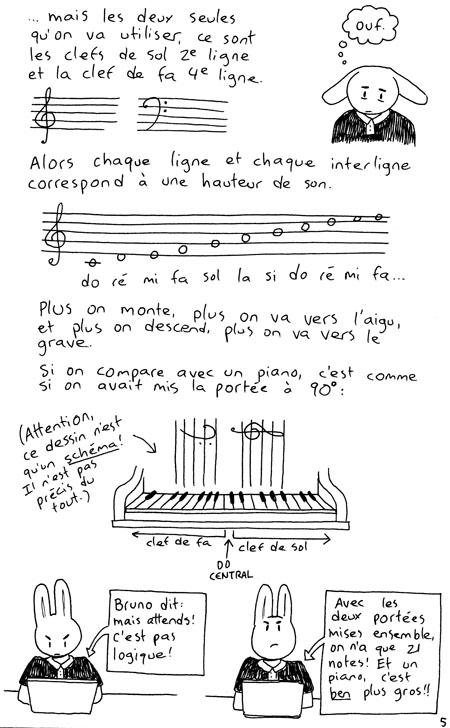 ... mais les deux seules
qu'on va utiliser, ce sont
les clefs de sol 2e ligne
et la clef de fa 4e ligne.
Ouf.
Alors chaque ligne et chaque interligne
correspond à une hauteur de son.
do ré mi fa sol la si do ré mi fa...
Plus on monte, plus on va vers l'aigu,
et plus on descend, plus on va vers le
grave.
Si on compare avec un piano, c'est comme
si on avait mis la portée à 90°:
(Attention,
ce dessin n'est
qu'un schéma!
Il n'est pas
précis du
tout.)
clef de fa
clef de sol
DO
CENTRAL
Bruno dit:
mais attends!
c'est pas
logique!
Avec les
deux portées
mises ensemble,
on n'a que 21
notes! Et un
piano, c'est
ben plus gros!!
5